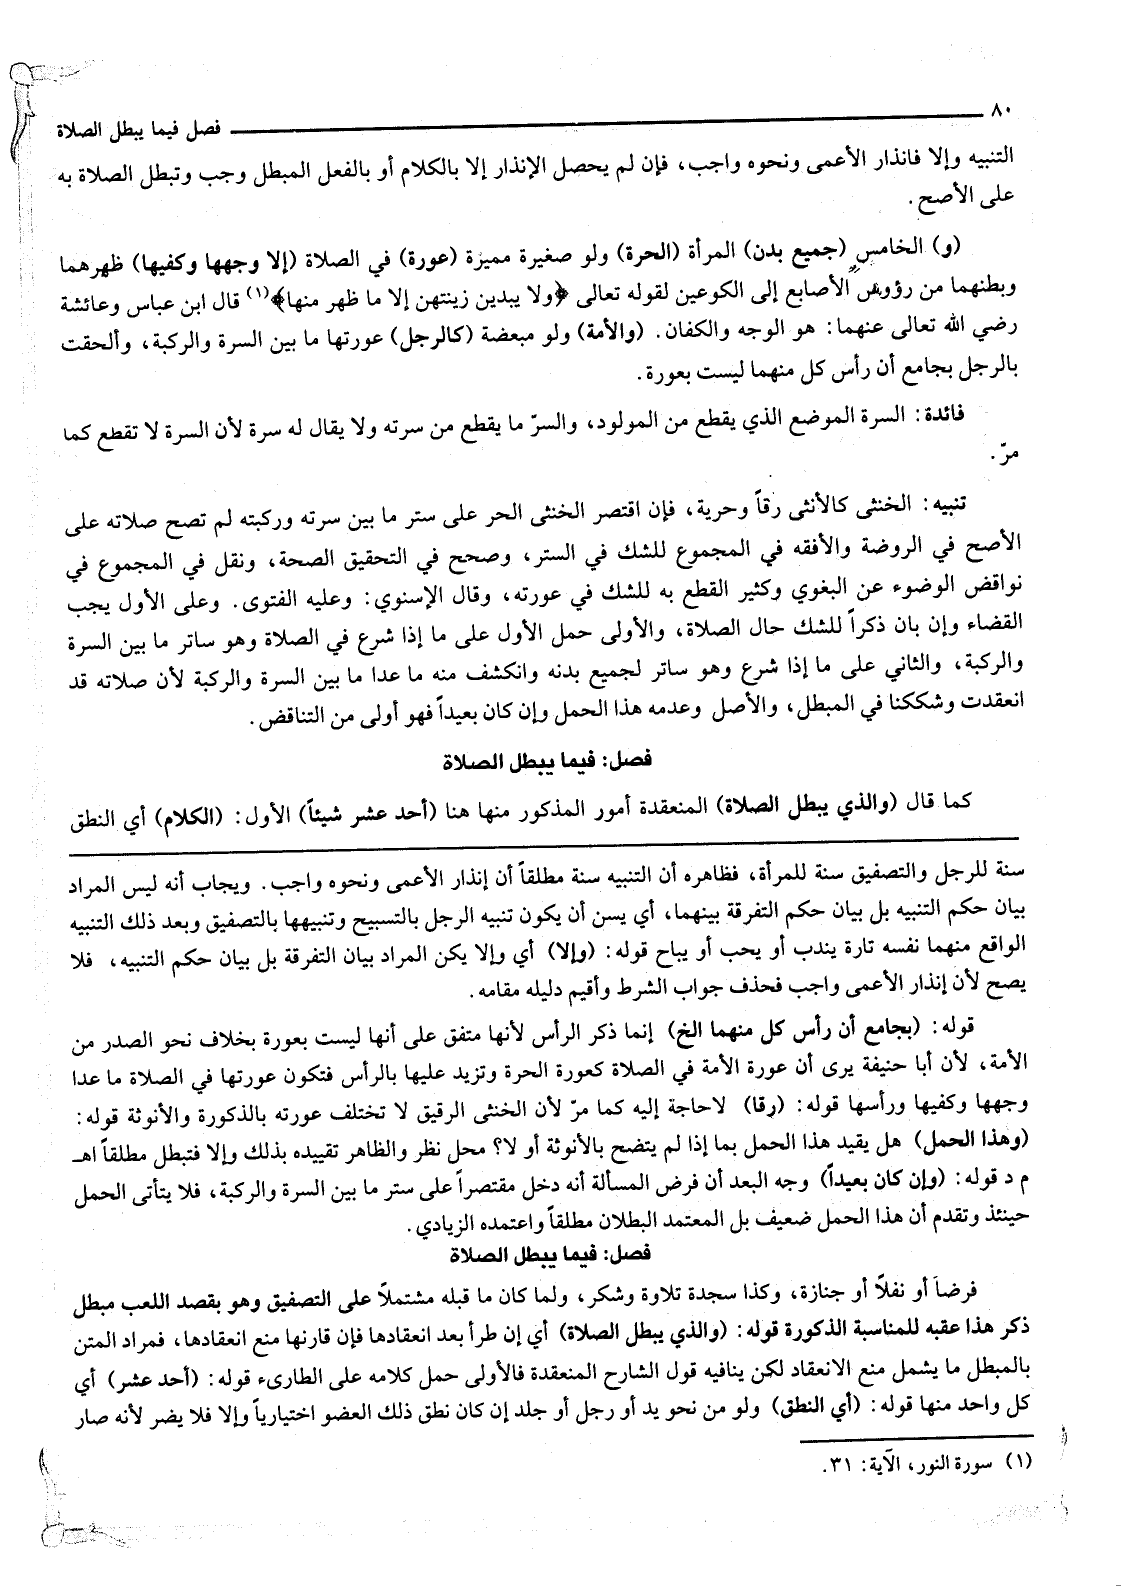 ٨٠ فصل فيما يبطل الصلاة
التنبيه وإلا فانذار الأعمى ونحوه واجب، فإن لم يحصل الإنذار إلا بالكلام أو بالفعل المبطل وجب وتبطل الصلاة به
على الأصح.
(و) الخامس (جميع بدن) المرأة (الحرة) ولو صغيرة مميزة (عورة) في الصلاة (إلا وجهها وكفيها) ظهرهما
وبطنهما من رؤوس الأصابع إلى الكوعين لقوله تعالى ﴿ولا يبدين زينتهن إلا ما ظهر منها﴾(١) قال ابن عباس وعائشة
رضي الله تعالى عنهما: هو الوجه والكفان. (والأمة) ولو مبعضة (كالرجل) عورتها ما بين السرة والركبة، وألحقت
بالرجل بجامع أن رأس كل منهما ليست بعورة.
فائدة: السرة الموضع الذي يقطع من المولود، والسرّ ما يقطع من سرته ولا يقال له سرة لأن السرة لا تقطع كما
مرّ.
تنبيه: الخنثى كالأنثى رقاً وحرية، فإن اقتصر الخنثى الحر على ستر ما بين سرته وركبته لم تصح صلاته على
الأصح في الروضة والأفقه في المجموع للشك في الستر، وصحح في التحقيق الصحة، ونقل في المجموع في
نواقض الوضوء عن البغوي وكثير القطع به للشك في عورته، وقال الإسنوي: وعليه الفتوى. وعلى الأول يجب
القضاء وإن بان ذكراً للشك حال الصلاة، والأولى حمل الأول على ما إذا شرع في الصلاة وهو ساتر ما بين السرة
والركبة، والثاني على ما إذا شرع وهو ساتر لجميع بدنه وانكشف منه ما عدا ما بين السرة والركبة لأن صلاته قد
انعقدت وشككنا في المبطل، والأصل وعدمه هذا الحمل وإن كان بعيداً فهو أولى من التناقض.
فصل: فيما يبطل الصلاة
كما قال (والذي يبطل الصلاة) المنعقدة أمور المذكور منها هنا (أحد عشر شيئاً) الأول: (الكلام) أي النطق
سنة للرجل والتصفيق سنة للمرأة، فظاهره أن التنبيه سنة مطلقاً أن إنذار الأعمى ونحوه واجب. ويجاب أنه ليس المراد
بيان حكم التنبيه بل بيان حكم التفرقة بينهما، أي يسن أن يكون تنبيه الرجل بالتسبيح وتنبيهها بالتصفيق وبعد ذلك التنبيه
الواقع منهما نفسه تارة يندب أو يحب أو يباح قوله: (وإلا) أي وإلا يكن المراد بيان التفرقة بل بيان حكم التنبيه، فلا
يصح لأن إنذار الأعمى واجب فحذف جواب الشرط وأقيم دليله مقامه.
قوله: (بجامع أن رأس كل منهما الخ) إنما ذكر الرأس لأنها متفق على أنها ليست بعورة بخلاف نحو الصدر من
الأمة، لأن أبا حنيفة يرى أن عورة الأمة في الصلاة كعورة الحرة وتزيد عليها بالرأس فتكون عورتها في الصلاة ما عدا
وجهها وكفيها ورأسها قوله: (رقا) لا حاجة إليه كما مرّ لأن الخنثى الرقيق لا تختلف عورته بالذكورة والأنوثة قوله:
(وهذا الحمل) هل يقيد هذا الحمل بما إذا لم يتضح بالأنوثة أو لا؟ محل نظر والظاهر تقييده بذلك وإلا فتبطل مطلقاً اهـ
م د قوله: (وإن كان بعيداً) وجه البعد أن فرض المسألة أنه دخل مقتصراً على ستر ما بين السرة والركبة، فلا يتأتى الحمل
حينئذ وتقدم أن هذا الحمل ضعيف بل المعتمد البطلان مطلقاً واعتمده الزيادي.
فصل: فيما يبطل الصلاة
فرضاً أو نفلاً أو جنازة، وكذا سجدة تلاوة وشكر، ولما كان ما قبله مشتملاً على التصفيق وهو بقصد اللعب مبطل
ذكر هذا عقبه للمناسبة الذكورة قوله: (والذي يبطل الصلاة) أي إن طرأ بعد انعقادها فإن قارنها منع انعقادها، فمراد المتن
بالمبطل ما يشمل منع الانعقاد لكن ينافيه قول الشارح المنعقدة فالأولى حمل كلامه على الطارىء قوله: (أحد عشر) أي
كل واحد منها قوله: (أي النطق) ولو من نحو يد أو رجل أو جلد إن كان نطق ذلك العضو اختيارياً وإلا فلا يضر لأنه صار
(١) سورة النور، الآية: ٣١.